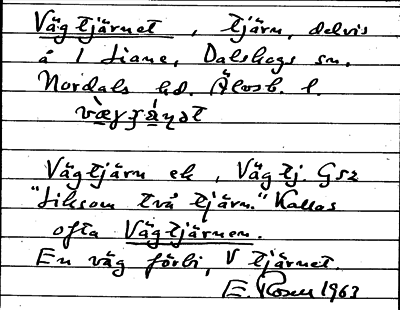 Vägtjärnet, tjärn, delvis
å 1 Liane, Dalskogs sn,
Nordals hd. Älvsb. l.
Vägtjärn ek, Vägtj. Gsz
"Liksom två tjärn." Kallas
ofta Vägtjärnen.
En väg förbi, V tjärnet.
E. Rosen 1963